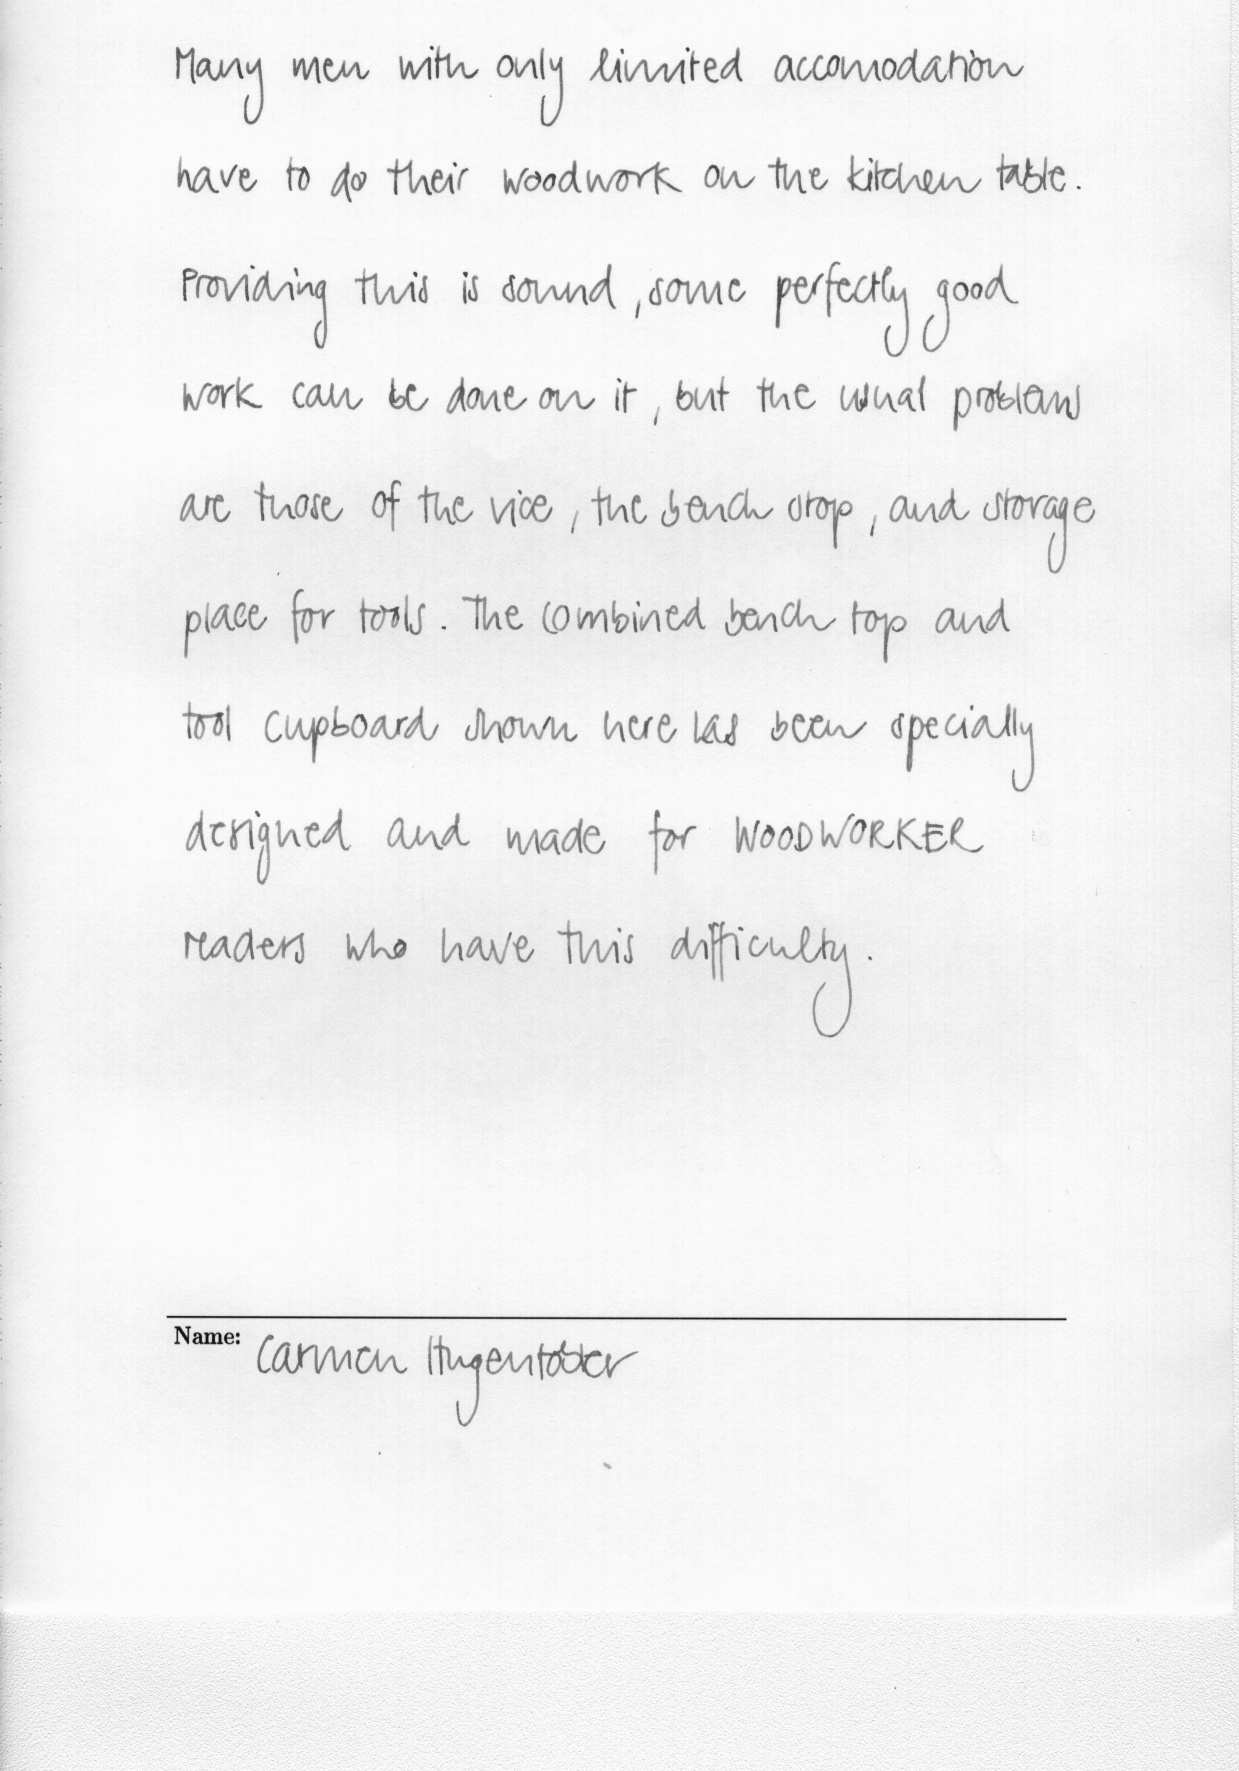 Many men with only limited accomodation
have to do their woodwork on the kitchen table.
Providing this is sound, some perfectly good
work can be done on it, but the usual problems
are those of the vice, the bench stop, and storage
place for tools. The combined bench top and
tool cupboard shown here has been specially
designed and made for WOODWORKER
readers who have this difficulty.
Name: Carmen Hugentobler